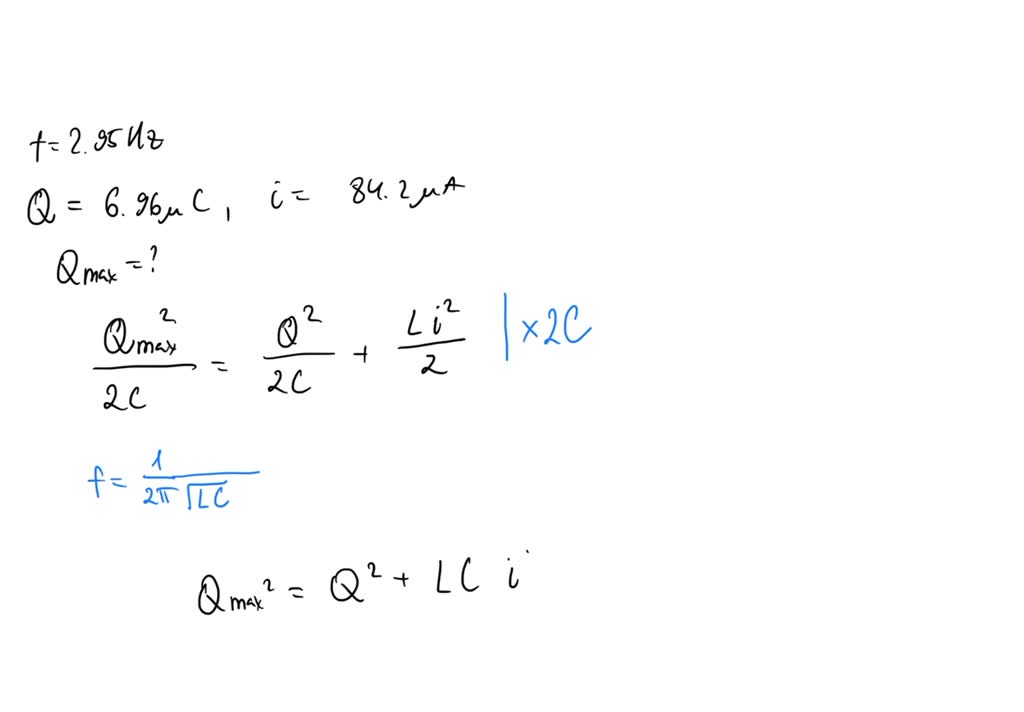 f = 2.95 Hz
Q = 6.96 μC, i = 84.2 μA
Qmax = ?
Qmax²/2C = Q²/2C + Li²/2 | × 2C
f = 1/2π√LC
Qmax² = Q² + LC i